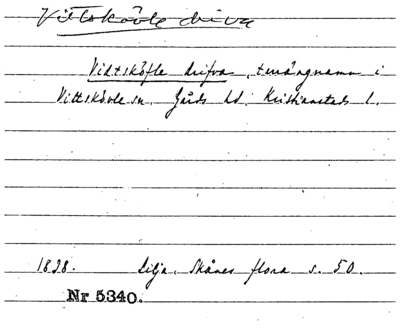 Vittskövle driva
Vidtsköfle drifva, terrängnamn i
Vittskövle sn. Gärds hd. Kristianstads l.
1838. Lilja, Skånes flora s. 50.
Nr 5340.